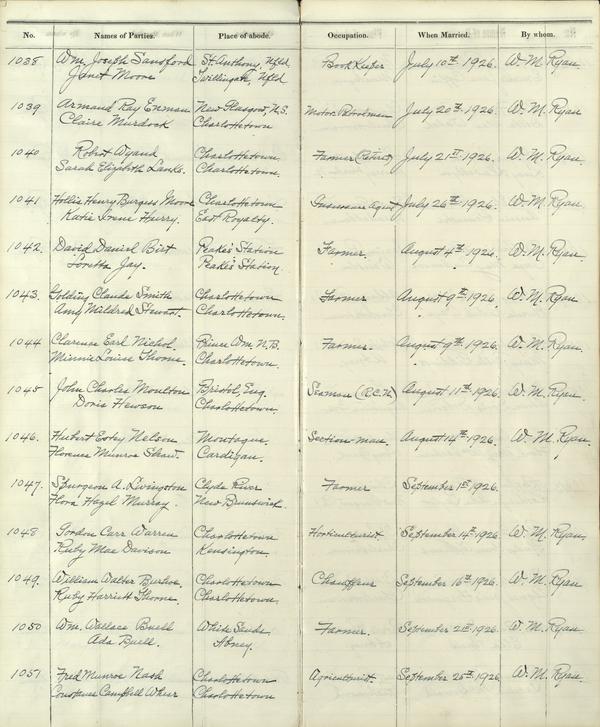 No. Names of Parties. Place of abode. Occupation. When Married. By whom.
1038 Wm. Joseph Sansford St. Anthony, Nfld Book Keeper July 10th 1926. W. M. Ryan
Janet Moore Twillingate, Nfld
1039 Armand Ray Enman New Glasgow, N.S. Motor Patrolman July 20th 1926. W. M. Ryan
Claire Murdock Charlottetown
1040 Robert Wyand Charlottetown Farmer (Retired) July 21st 1926. W. M. Ryan.
Sarah Elizabeth Charlottetown.
1041 Hollis Henry Burgess Moore Charlottetown Insurance Agent July 26th 1926. W. M. Ryan
Katie Irene Hurry. East Royalty.
1042. David Daniel Birt Peake's Station Farmer. August 4th 1926. W. M. Ryan.
Loretta Jay. Peake's Station.
1043. Golding Claude Smith Charlottetown Farmer August 9th 1926. W. M. Ryan
Amy Mildred Stewart. Charlottetown.
1044 Clarence Earl Nichol. Prince Wm. N.B. Farmer. August 9th 1926. W. M. Ryan.
Minnie Louise Thorne. Charlottetown.
1045 John Charles Moulton Bristol, Eng. Seaman (R.C.N.) August 11th 1926. W. M. Ryan.
Doris Hewson Charlottetown.
1046. Hubert Estey Nelson Montague Section-man. August 14th 1926. W. M. Ryan.
Florence Munroe Shaw. Cardigan.
1047. Spurgeon A. Livingston Clyde River Farmer September 1st 1926. W. M. Ryan.
Flora Hazel Murray. New Brunswick.
1048 Gordon Carr Warren Charlottetown Horticulturist September 14th 1926. W. M. Ryan,
Ruby Mae Davison Kensington.
1049. William Walter Charlottetown Chauffeur September 16th 1926. W. M. Ryan
Ruby Harriett Thorne. Charlottetown
1050 Wm. Wallace Buell White Sands Farmer. September 21st 1926. W. M. Ryan.
Ada Buell. Abney.
1051 Fred Munroe Nash Charlottetown Agriculturist. September 25th 1926 W. M. Ryan.
Constance Campbell Charlottetown